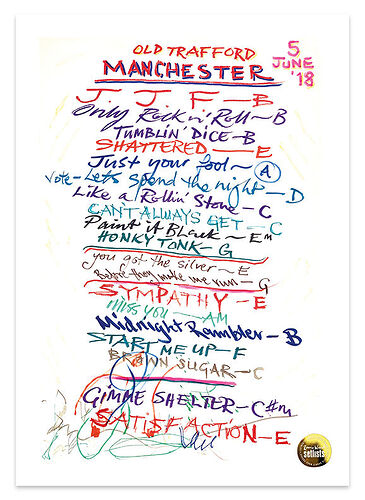 OLD TRAFFORD
MANCHESTER
5
JUNE
'18
J. J. F - B
Only Rock n' Roll - B
TUMBLIN' DICE - B
SHATTERED - E
Just your fool - A
Vote - Let's spend the night - D
Like a Rollin' Stone - C
CAN'T ALWAYS GET - C
Paint it Black - Em
HONKY TONK - G
you got the silver - E
Before they make me run - G
SYMPATHY - E
Miss you - AM
Midnight Rambler - B
START ME UP - F
BROWN SUGAR - C
GIMME SHELTER - C#m
SATISFACTION - E
setlists